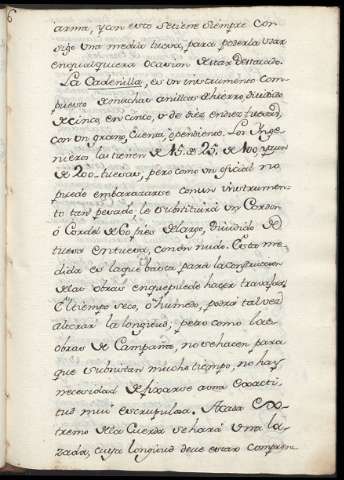 6
arma, y con esto se tiene siempre con-
sigo una media tuesa, para poderla usar
en qualquiera ocasion de estar destacado.
La Cadenilla, es un instrumento com-
puesto de muchas anillas de hierro, dividido
de cinco, en cinco, ò de diez en diez tuesas,
con un grano, Cuenta, ò pendiente. Los Inge-
nieros las tienen de 15. de 25. de 100. y aun
de 200. tuesas, pero como un oficial no
puede embarazarse con un instrumen-
to tan pesado, le substituirá un Cordon
ò Cordel de 60 pies de largo, dividido de
tuesa en tuesa, con un nudo. Esta me-
dida es la que basta para la construccion
de las obras en que puede hacer travajar.
El tiempo seco, ò humedo, podrá tal vez
alterar la longitud; pero como las
obras de Campaña, no se hacen para
que subsistan mucho tiempo, no hay
necesidad de fixarse a una exacti-
tud mui escrupulosa. A cada Ex-
tremo de la Cuerda se hará una la-
zada, cuya longitud deve estar compren-